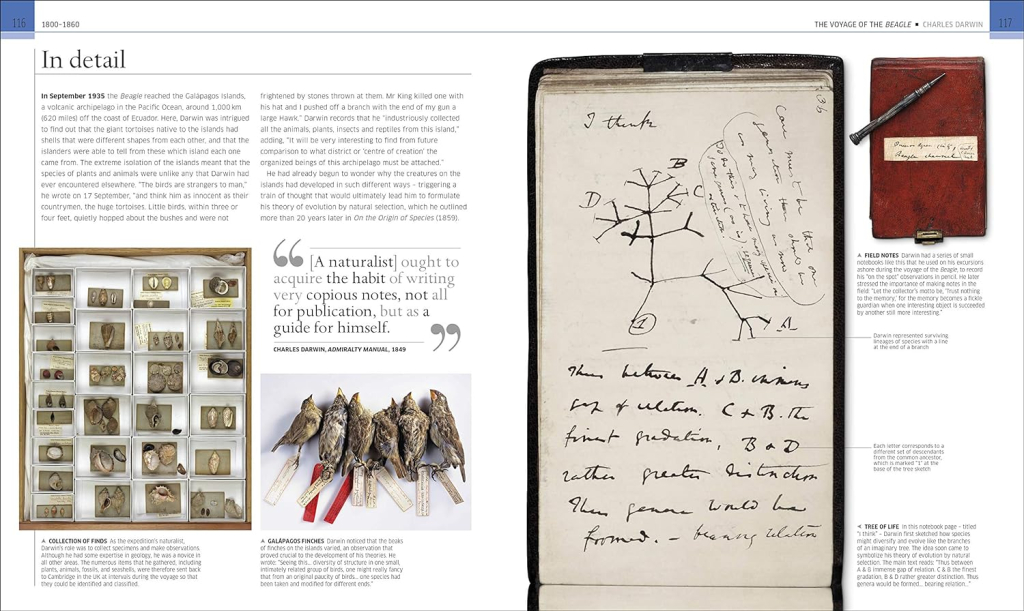 116
1800–1860
THE VOYAGE OF THE BEAGLE ■ CHARLES DARWIN
117
In detail
In September 1935 the Beagle reached the Galápagos Islands,
a volcanic archipelago in the Pacific Ocean, around 1,000 km
(620 miles) off the coast of Ecuador. Here, Darwin was intrigued
to find out that the giant tortoises native to the islands had
shells that were different shapes from each other, and that the
islanders were able to tell from these which island each one
came from. The extreme isolation of the islands meant that the
species of plants and animals were unlike any that Darwin had
ever encountered elsewhere. “The birds are strangers to man,”
he wrote on 17 September, “and think him as innocent as their
countrymen, the huge tortoises. Little birds, within three or
four feet, quietly hopped about the bushes and were not
frightened by stones thrown at them. Mr King killed one with
his hat and I pushed off a branch with the end of my gun a
large Hawk.” Darwin records that he “industriously collected
all the animals, plants, insects and reptiles from this island,”
adding, “It will be very interesting to find from future
comparison to what district or ‘centre of creation’ the
organized beings of this archipelago must be attached.”
He had already begun to wonder why the creatures on the
islands had developed in such different ways – triggering a
train of thought that would ultimately lead him to formulate
his theory of evolution by natural selection, which he outlined
more than 20 years later in On the Origin of Species (1859).
“[A naturalist] ought to
acquire the habit of writing
very copious notes, not all
for publication, but as a
guide for himself.”
CHARLES DARWIN, ADMIRALTY MANUAL, 1849
▲ COLLECTION OF FINDS As the expedition's naturalist,
Darwin's role was to collect specimens and make observations.
Although he had some expertise in geology, he was a novice in
all other areas. The numerous items that he gathered, including
plants, animals, fossils, and seashells, were therefore sent back
to Cambridge in the UK at intervals during the voyage so that
they could be identified and classified.
▲ GALÁPAGOS FINCHES Darwin noticed that the beaks
of finches on the islands varied, an observation that
proved crucial to the development of his theories. He
wrote: “Seeing this... diversity of structure in one small,
intimately related group of birds, one might really fancy
that from an original paucity of birds... one species had
been taken and modified for different ends.”
36
I think
Case must be that one
generation then should be
as many living as now
To do this & to have many species in
same genus (as is). requires
extinction
B
C
D
A
1
Thus between A & B. immense
gap of relation. C & B. the
finest gradation, B & D
rather greater distinction
Thus genera would be
formed. – bearing relation
▲ FIELD NOTES Darwin had a series of small
notebooks like this that he used on his excursions
ashore during the voyage of the Beagle, to record
his “on the spot” observations in pencil. He later
stressed the importance of making notes in the
field “Let the collector's motto be, ‘Trust nothing
to the memory;’ for the memory becomes a fickle
guardian when one interesting object is succeeded
by another still more interesting.”
Darwin represented surviving
lineages of species with a line
at the end of a branch
Each letter corresponds to a
different set of descendants
from the common ancestor,
which is marked “1” at the
base of the tree sketch
◄ TREE OF LIFE In this notebook page – titled
“I think” – Darwin first sketched how species
might diversify and evolve like the branches
of an imaginary tree. The idea soon came to
symbolize his theory of evolution by natural
selection. The main text reads: “Thus between
A & B immense gap of relation. C & B the finest
gradation, B & D rather greater distinction. Thus
genera would be formed... bearing relation...”